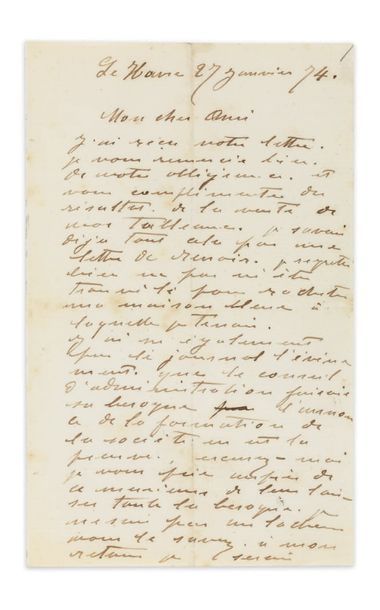 Le Havre 27 Janvier 74.
1
Mon cher Ami
J'ai reçu votre lettre.
je vous remercie bien
de votre obligeance. et
vous complimente du
résultat de la vente de
vos tableaux. je savais
déjà tout cela par une
lettre de Renoir. je regrette
bien ne pas m'être
trouvé là pour racheter
ma maison bleue à
laquelle je tenais.
J'ai vu également
par le journal l'évène
ment. que le conseil
d'administration faisait
sa besogne l'annon
ce de la formation de
la société m'en est la
preuve. excusez-moi
je vous prie auprès de
ces messieurs de leur lais-
ser toute la besogne. je
ne suis pas un lâcheur
vous le savez. à mon
retour je serai